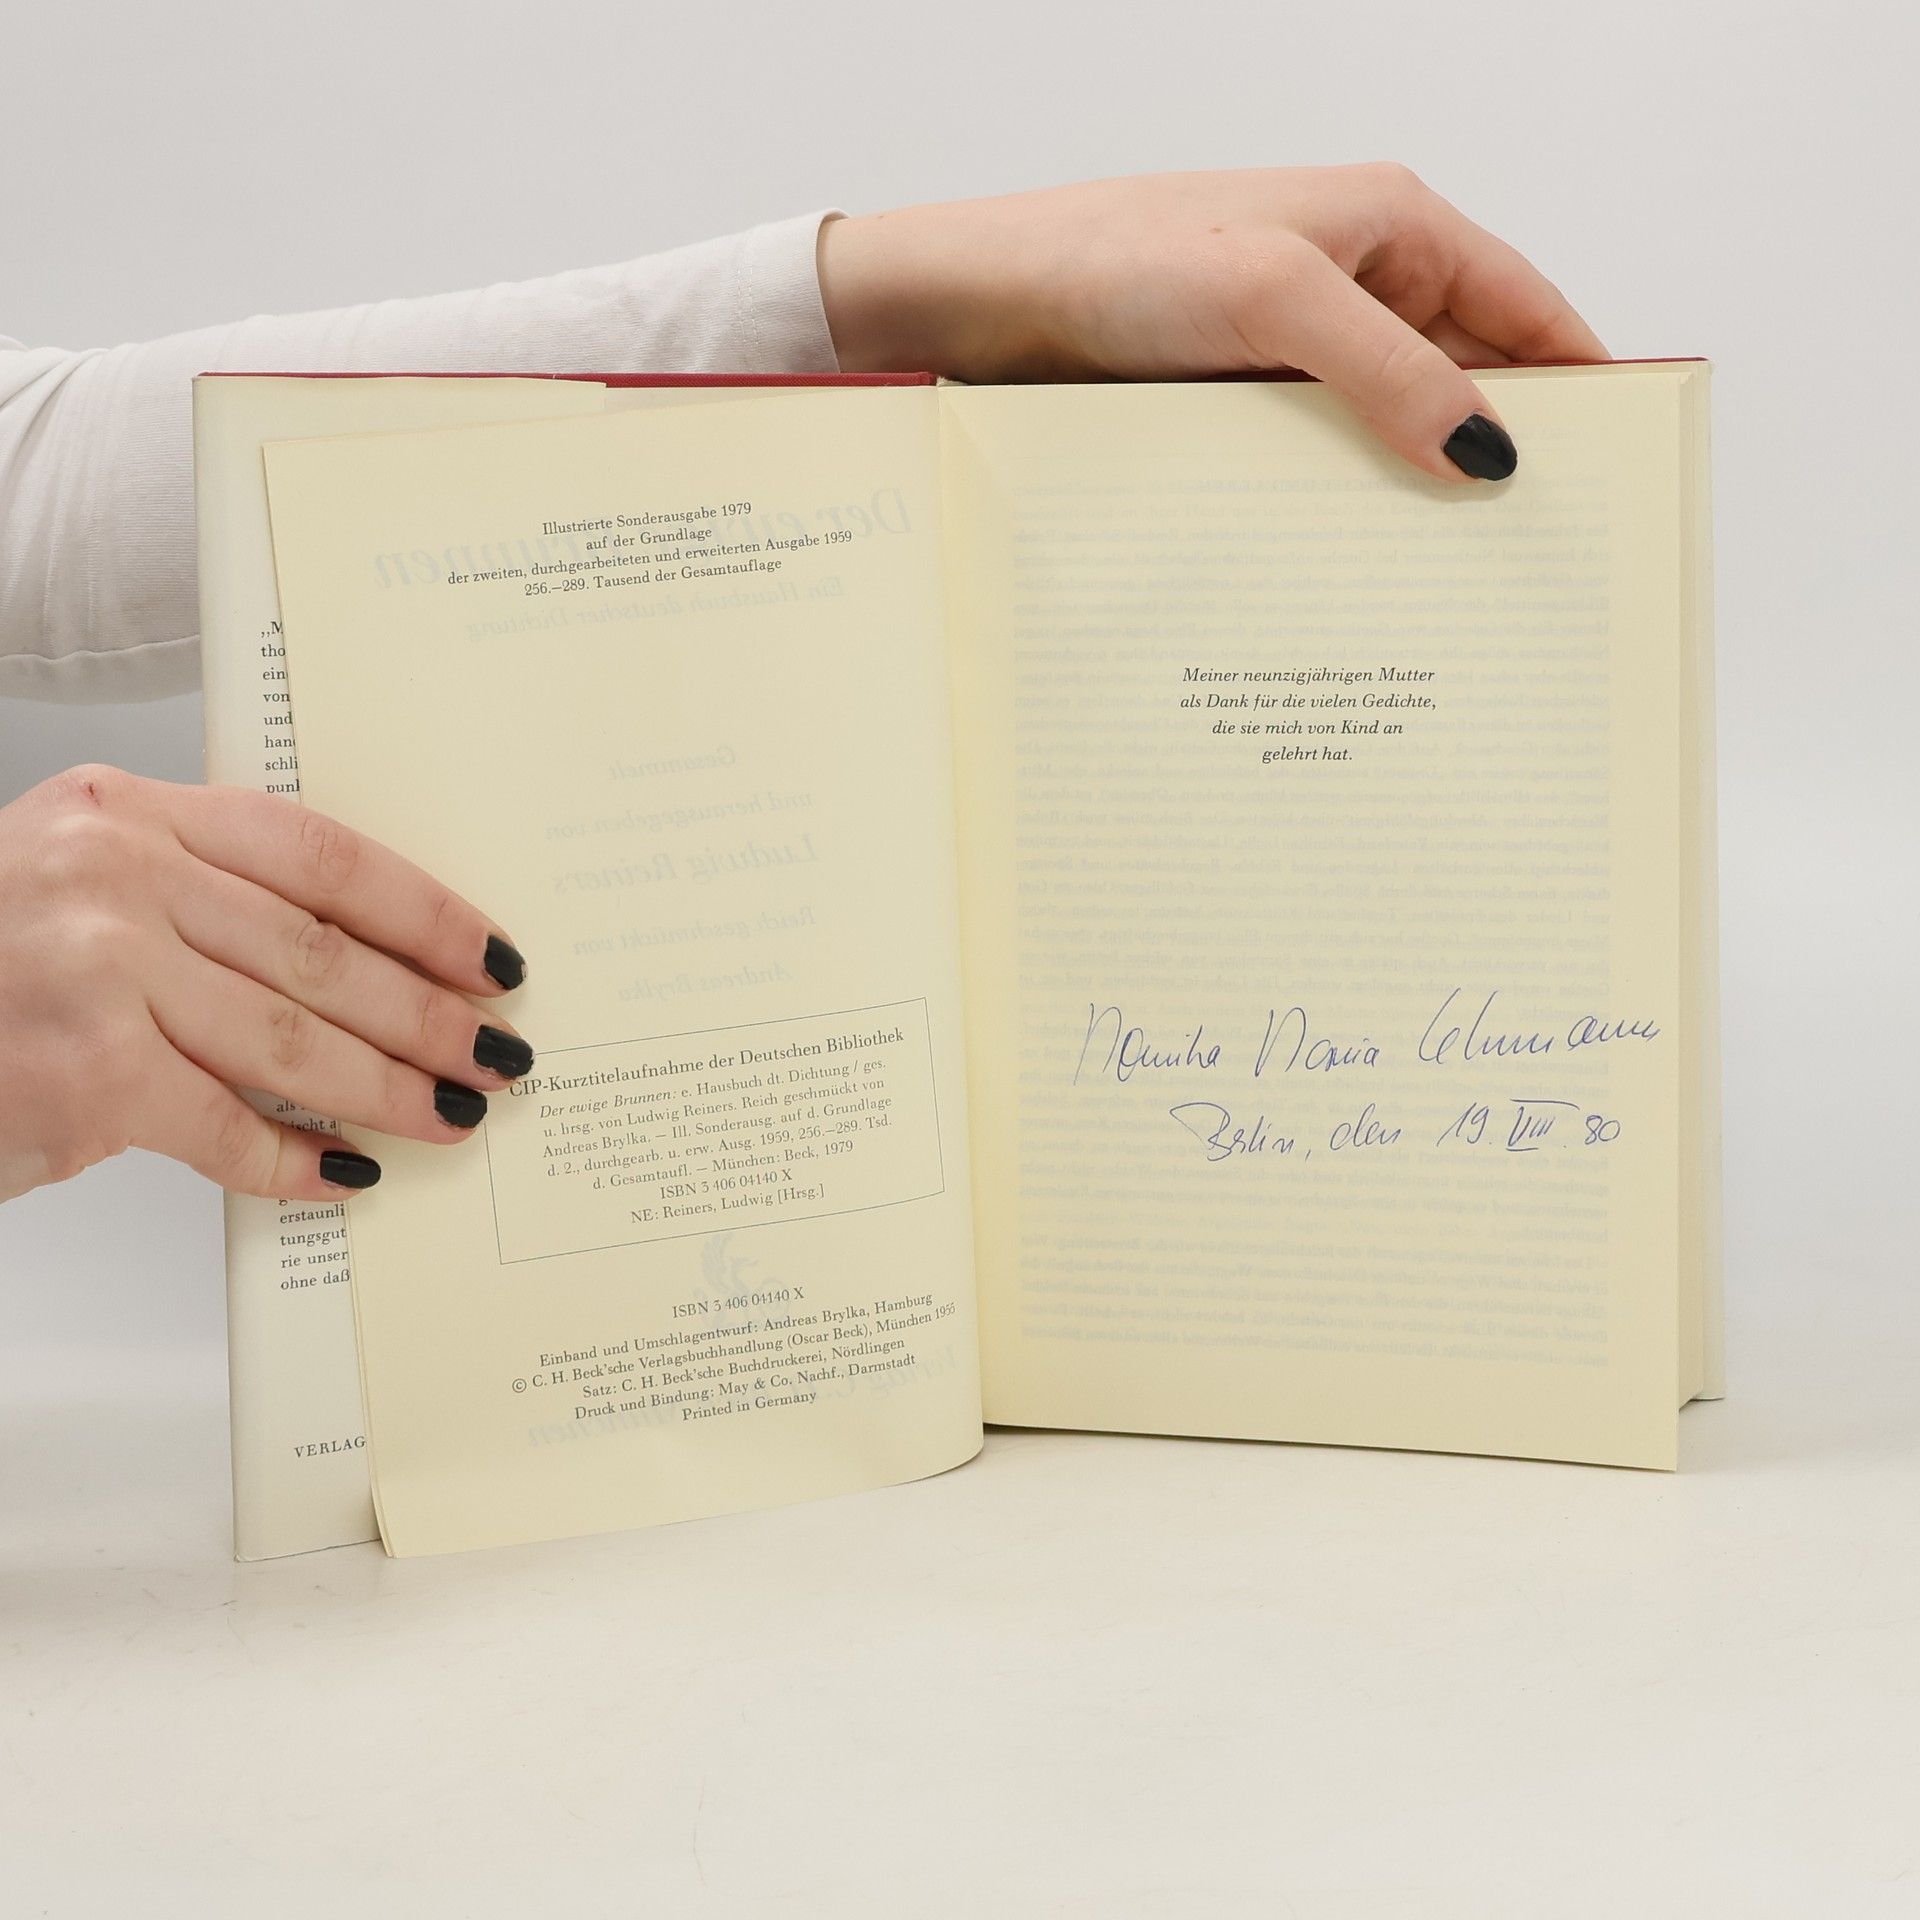 „M
tho
ein
von
und
han
schli
punk
als
ischt a
erstaunli
tungsgut
rie unser
ohne daß
VERLAG
Illustrierte Sonderausgabe 1979
auf der Grundlage
der zweiten, durchgearbeiteten und erweiterten Ausgabe 1959
256.–289. Tausend der Gesamtauflage
CIP-Kurztitelaufnahme der Deutschen Bibliothek
Der ewige Brunnen: e. Hausbuch dt. Dichtung / ges.
u. hrsg. von Ludwig Reiners. Reich geschmückt von
Andreas Brylka. – Ill. Sonderausg. auf d. Grundlage
d. 2., durchgearb. u. erw. Ausg. 1959, 256.–289. Tsd.
d. Gesamtaufl. – München: Beck, 1979
ISBN 3 406 04140 X
NE: Reiners, Ludwig [Hrsg.]
ISBN 3 406 04140 X
Einband und Umschlagentwurf: Andreas Brylka, Hamburg
© C. H. Beck'sche Verlagsbuchhandlung (Oscar Beck), München 1955
Satz: C. H. Beck'sche Buchdruckerei, Nördlingen
Druck und Bindung: May & Co. Nachf., Darmstadt
Printed in Germany
Meiner neunzigjährigen Mutter
als Dank für die vielen Gedichte,
die sie mich von Kind an
gelehrt hat.
Monika Maria Lehmann
Berlin, den 19. VIII. 80